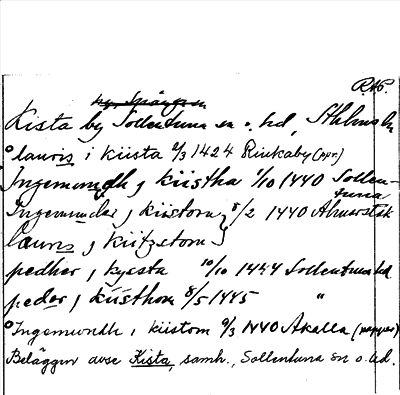 RAP.
Kista by Sollentuna sn o. hd, Sthlms ln
lauris i kiista 2/3 1424 Rinkaby (ppr)
Ingemundh j kiistha 1/10 1440 Sollentuna
Ingemunder j kiistom } 8/2 1440 Ahusrstæk
lauris j kiitzstom }
pedher j kysta 10/10 1444 Sollentuna hd
peder j kiisthom 8/5 1445 "
Ingemundh i kiistom 9/3 1440 Akalla (papper)
Beläggen avse Kista, samh., Sollentuna sn o. hd.